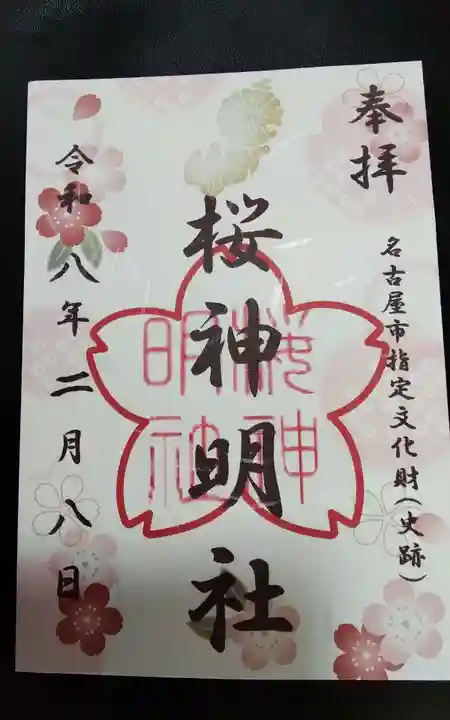 奉拝
名古屋市指定文化財(史跡)
桜神明社
櫻神
明社
令和八年二月八日